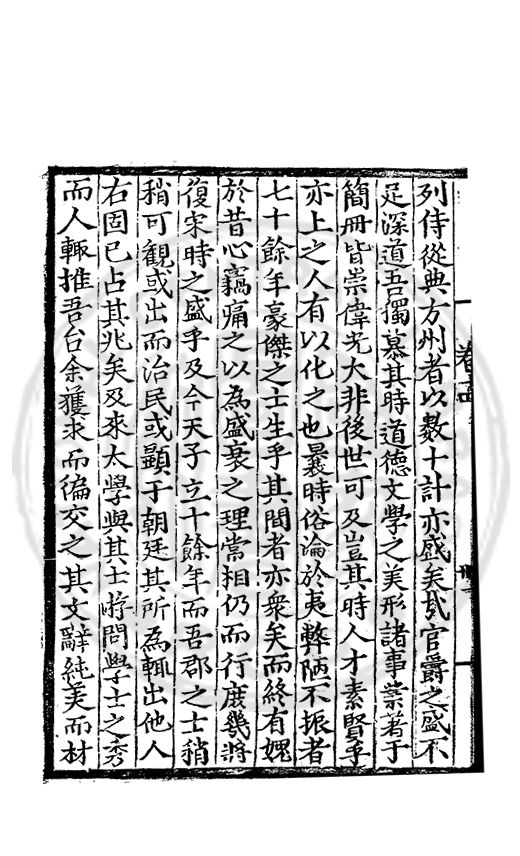 列侍從典方州者以數十計亦盛矣貮官爵之盛不
足深道吾獨慕其時道德文學之美形諸事業著于
簡冊皆崇偉光大非後世可及豈其時人才素賢乎
亦上之人有以化之也曩時俗淪於夷弊陋不振者
七十餘年豪傑之士生乎其間者亦衆矣而終有媿
於昔心竊痛之以為盛衰之理常相仍而行庶幾將
復宋時之盛乎及今天子立十餘年而吾郡之士稍
稍可觀或出而治民或顯于朝廷其所為輒出他人
右固已占其兆矣及來太學與其士游問學士之秀
而人輒推吾台余獲求而徧交之其文辭純美而材